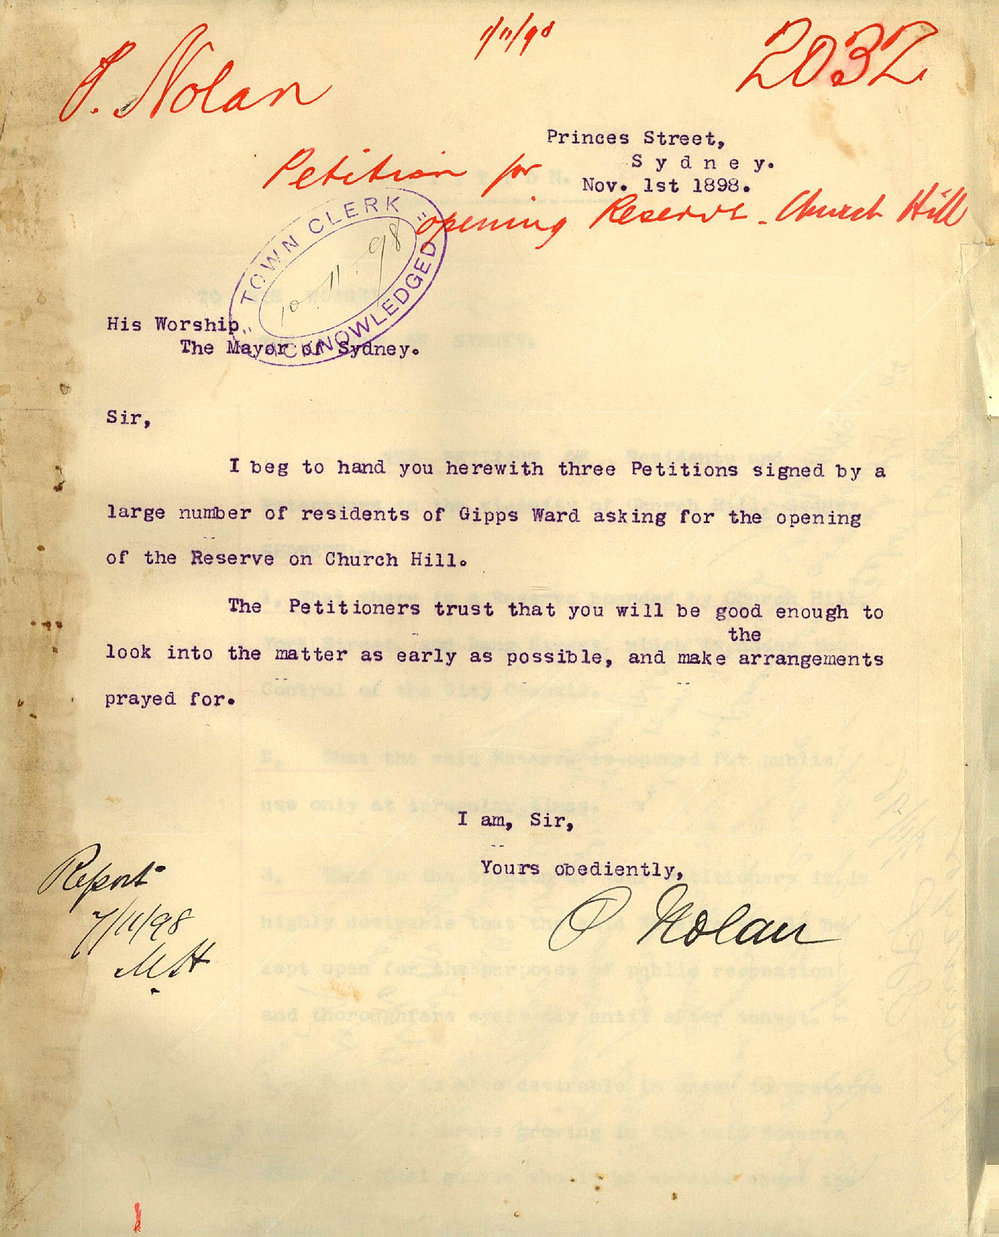 P. Nolan
1/11/98
2032
Princes Street,
Sydney.
Nov. 1st 1898.
Petition for
opening Reserve - Church Hill
"TOWN CLERK"
10.11.98
ACKNOWLEDGED
His Worship,
The Mayor of Sydney.
Sir,
I beg to hand you herewith three Petitions signed by a
large number of residents of Gipps Ward asking for the opening
of the Reserve on Church Hill.
The Petitioners trust that you will be good enough to
the
look into the matter as early as possible, and make arrangements
prayed for.
I am, Sir,
Yours obediently,
P Nolan
Report
7/11/98
M.H